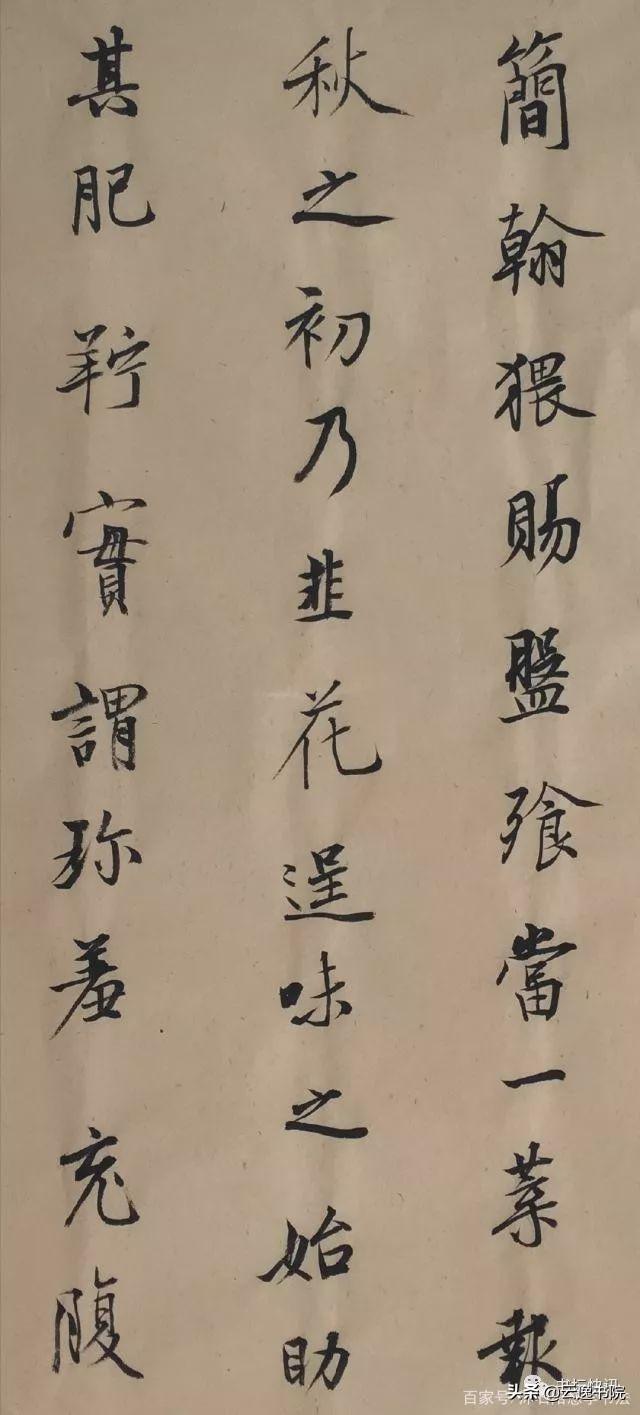 簡翰猥賜盤飱當一葉報
秋之初乃韭花逞味之始助
其肥羜實謂珎羞充腹
书坛快讯
百家号
头条@云逸书院